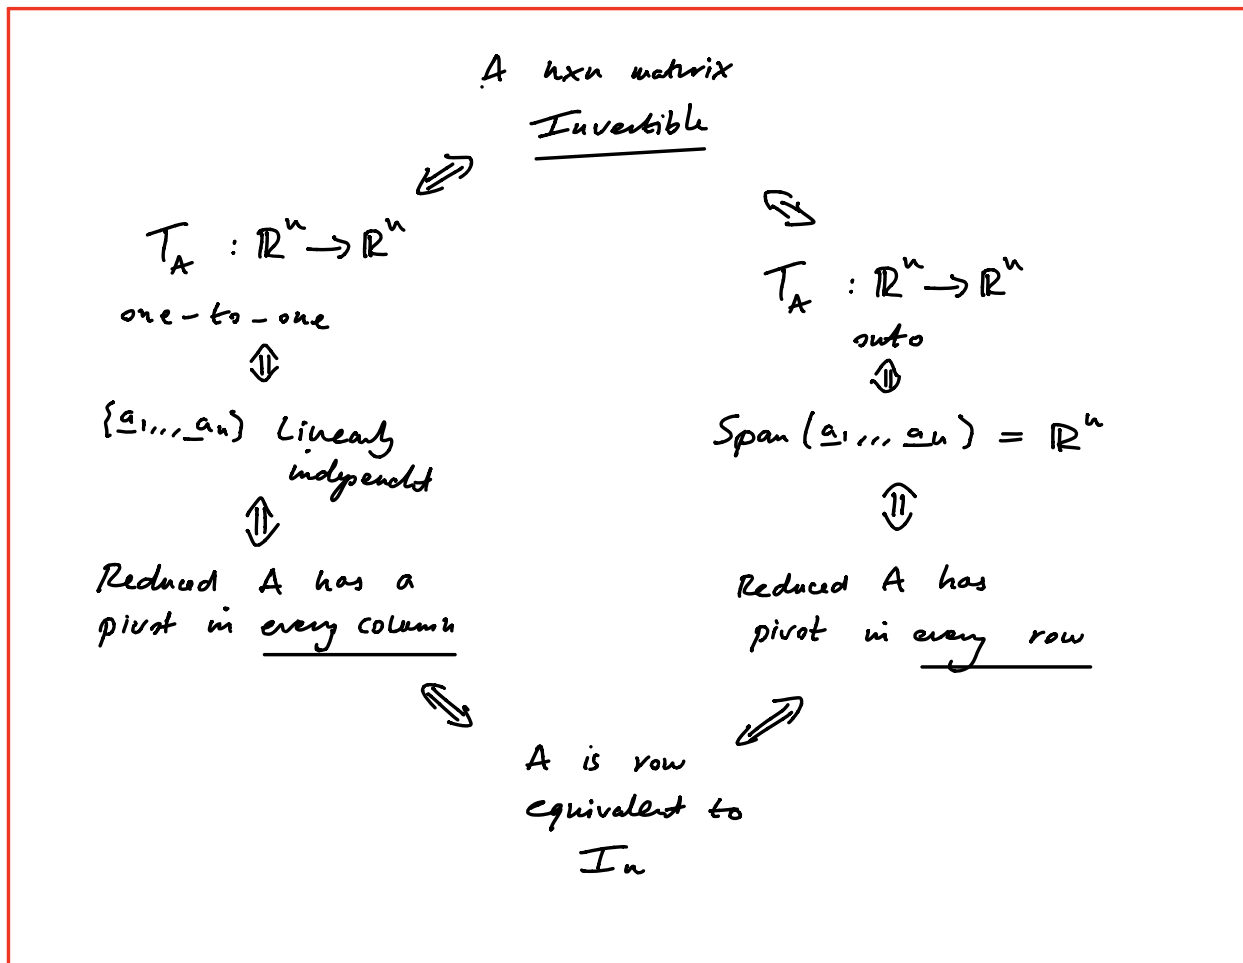 A nxn matrix
Invertible
⇔
⇔
T_A : ℝⁿ → ℝⁿ
one-to-one
⇕
{a₁,..., aₙ} Linearly
indepenent
⇕
Reduced A has a
pivot in every column
T_A : ℝⁿ → ℝⁿ
onto
⇕
Span (a₁,... aₙ) = ℝⁿ
⇕
Reduced A has
pivot in every row
⇔
⇔
A is row
equivalent to
Iₙ